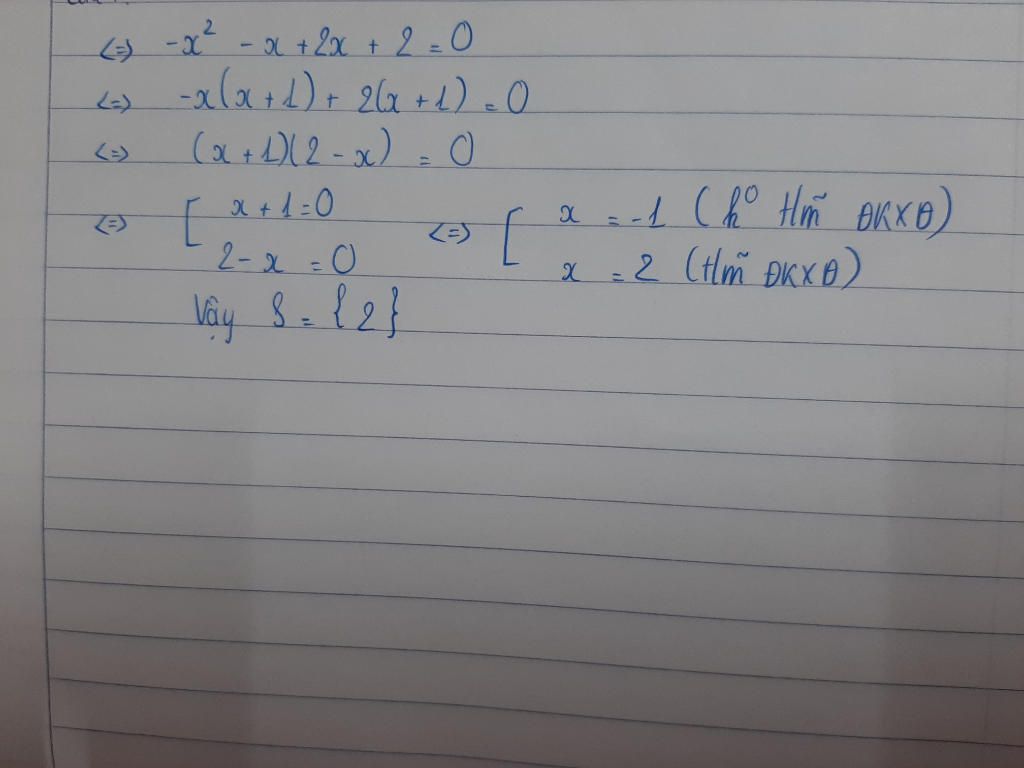 <=> -x² - x + 2x + 2 = 0
<=> -x(x + 1) + 2(x + 1) = 0
<=> (x + 1)(2 - x) = 0
<=> [ x + 1 = 0 <=> [ x = -1 (k⁰ Hm̃ ĐKXĐ)
2 - x = 0 x = 2 (Hm̃ ĐKXĐ)
Vậy S = {2}